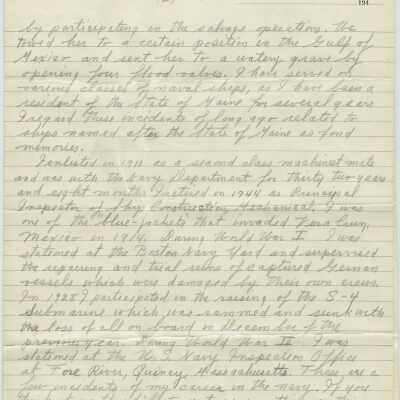 194
by participating in the salvage operations. We
towed her to a certain position in the Gulf of
Mexico and sent her to a watery grave by
opening four flood valves. I have served on
various classes of naval ships, as I have been a
resident of the State of Maine for several years
I regard these incidents of long ago related to
ships named after the State of Maine as fond
memories.
I enlisted in 1911 as a second class machinist mate
and was with the Navy Department for thirty two years
and eight months I retired in 1944 as Principal
Inspector of Ship Construction, Mechanical. I was
one of the "blue-jackets" that invaded Vera Cruz,
Mexico in 1914. During World War I I was
stationed at the Boston Navy Yard and supervised
the repairing and trial runs of captured German
vessels which were damaged by their own crews.
In 1928 I participated in the raising of the S-4
Submarine which was rammed and sunk with
the loss of all on board in December of the
previous year. During World War II I was
stationed at the U.S. Navy Inspection Office
at Fore River, Quincy, Massachusetts. These are a
few incidents of my career in the navy. If you